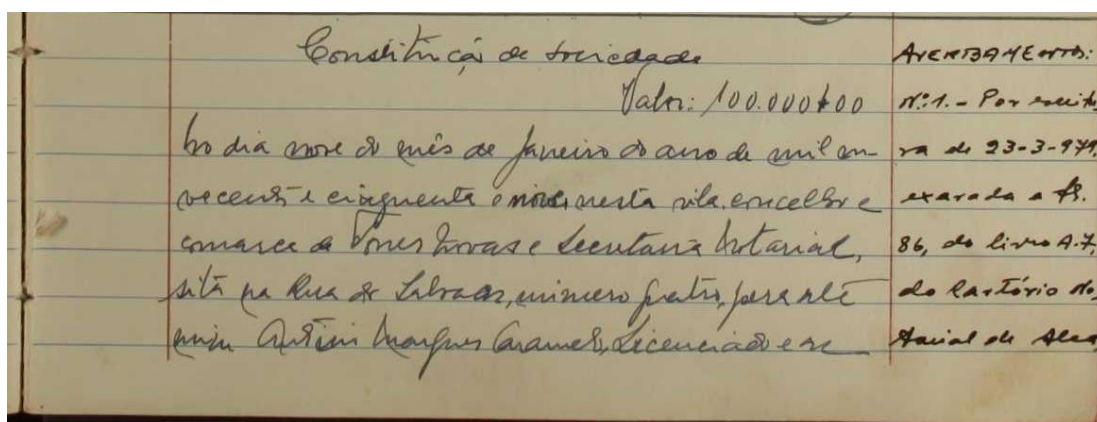 Constituição de sociedade
Valor: 100.000$00
No dia nove do mês de Janeiro do ano de mil no-
vecentos e cinquenta e nove, nesta vila, concelho e
comarca de Torres Novas e Secretaria Notarial,
sita na Rua de, número quatro, perante
mim António Marques Caramelo, Licenciado e
AVERBAMENTOS:
Nº 1. - Por escritu
ra de 23-3-979,
exarada a fls.
86, do livro A-7,
do Cartório No
tarial de Alca